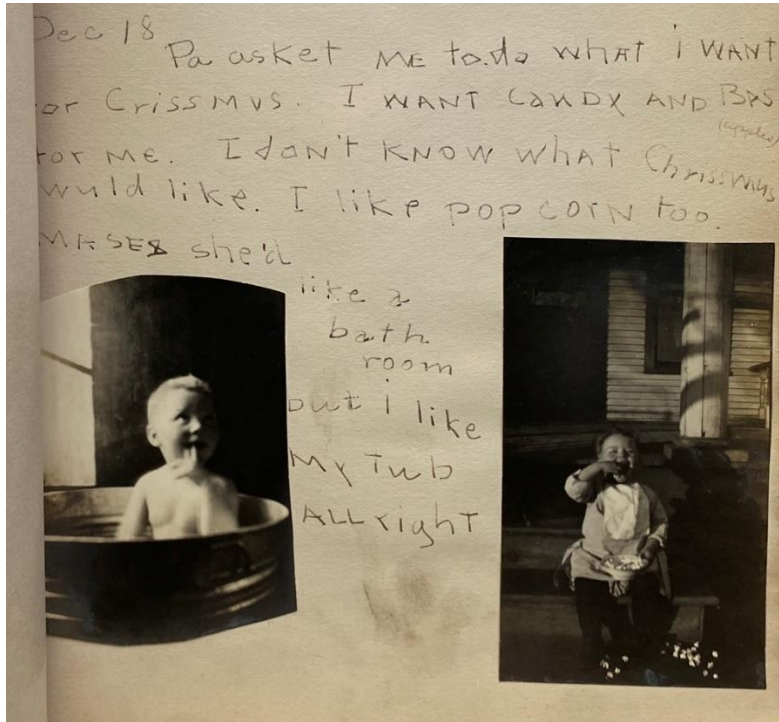 Dec 18
Pa asket ME to.da wHAT i WANT
or CrissMus. I WANT CANDY AND BPS
(apples)
for ME. I don't KNOW wHAT Chrissmus
wuld like. I like pop CORN Too.
MA SES she'd
like a
bath
room
but i like
My Tub
ALL righT